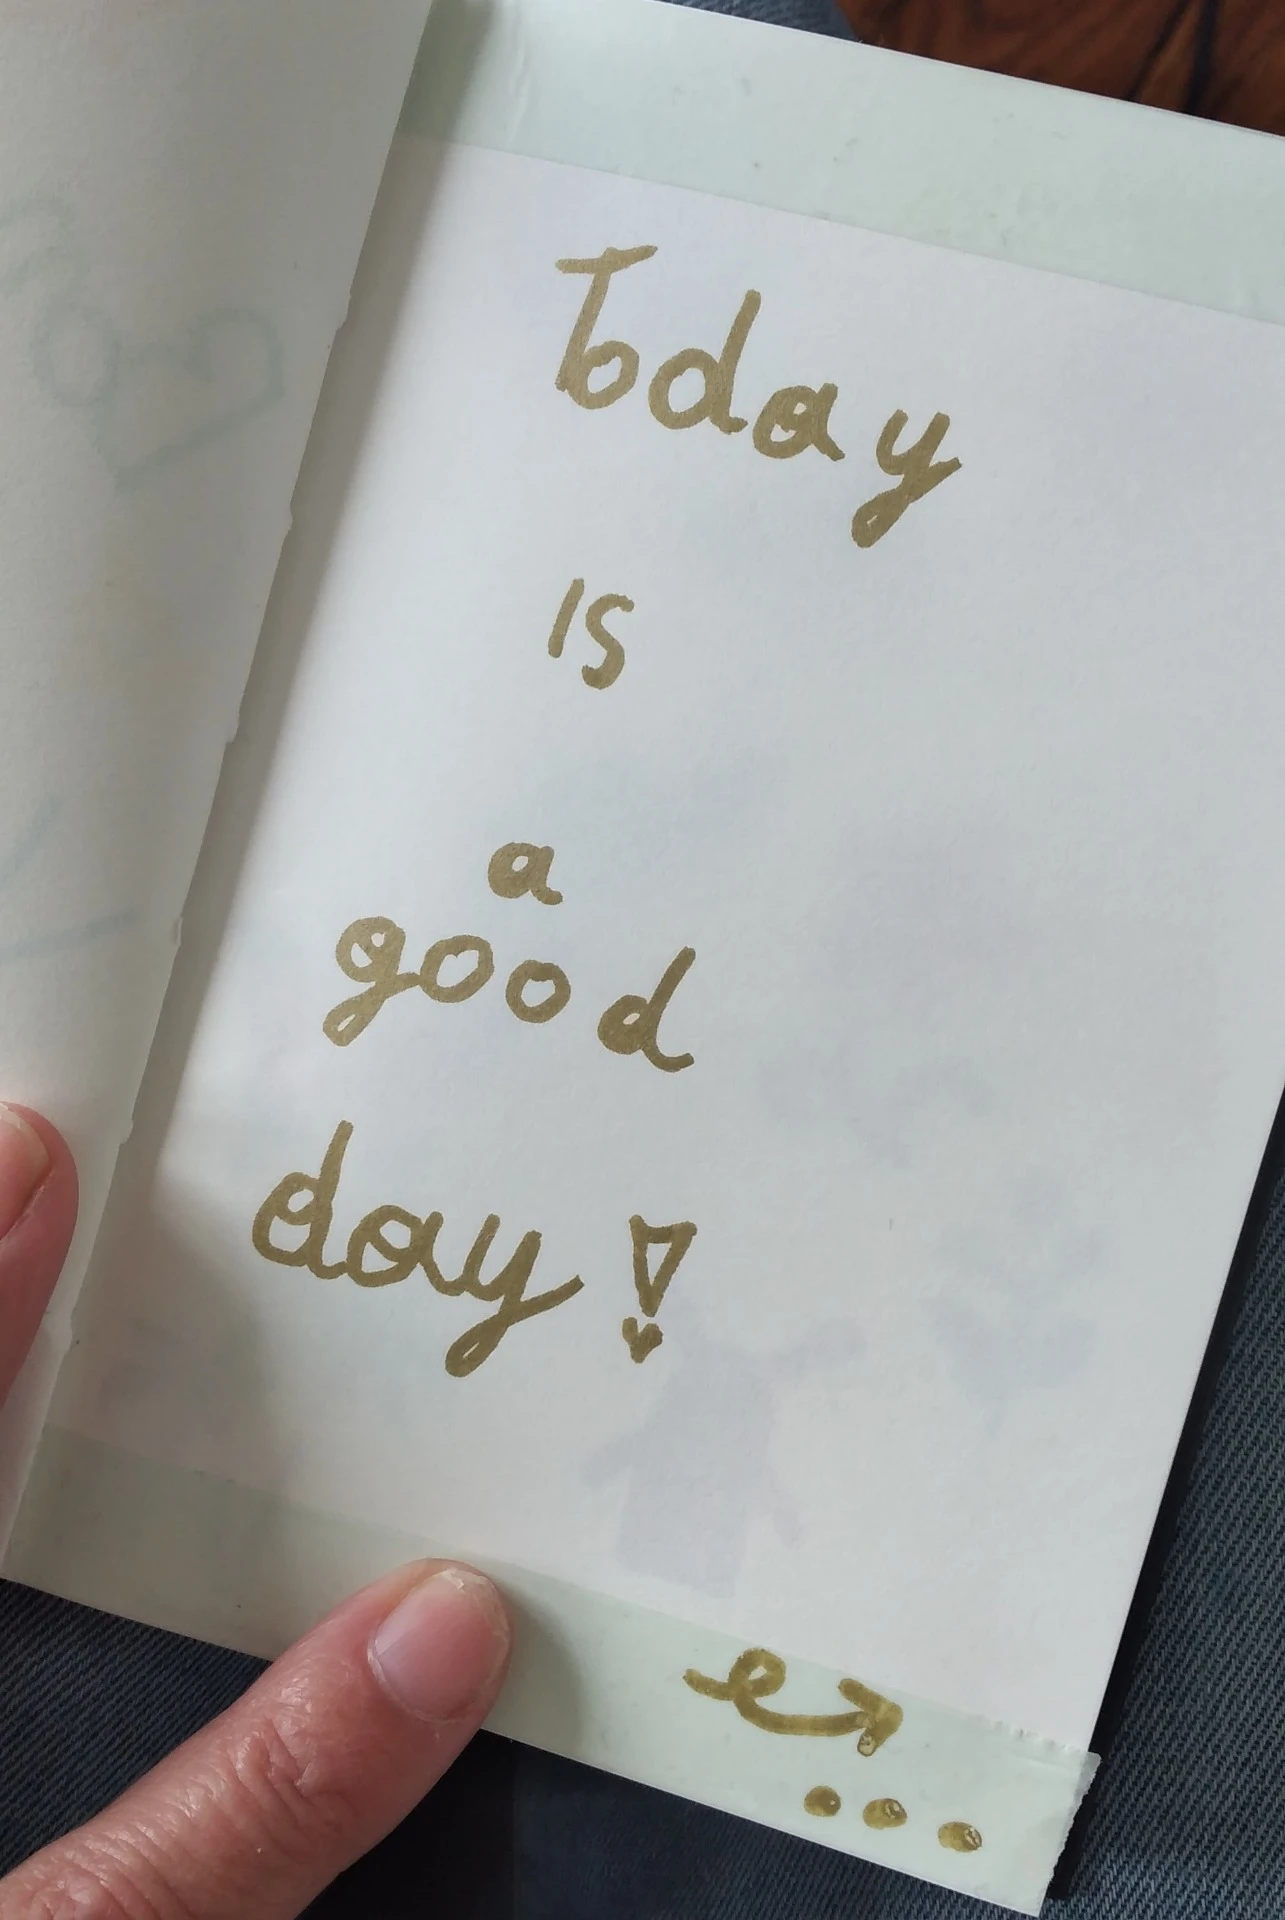 Today
is
a
good
day!
...